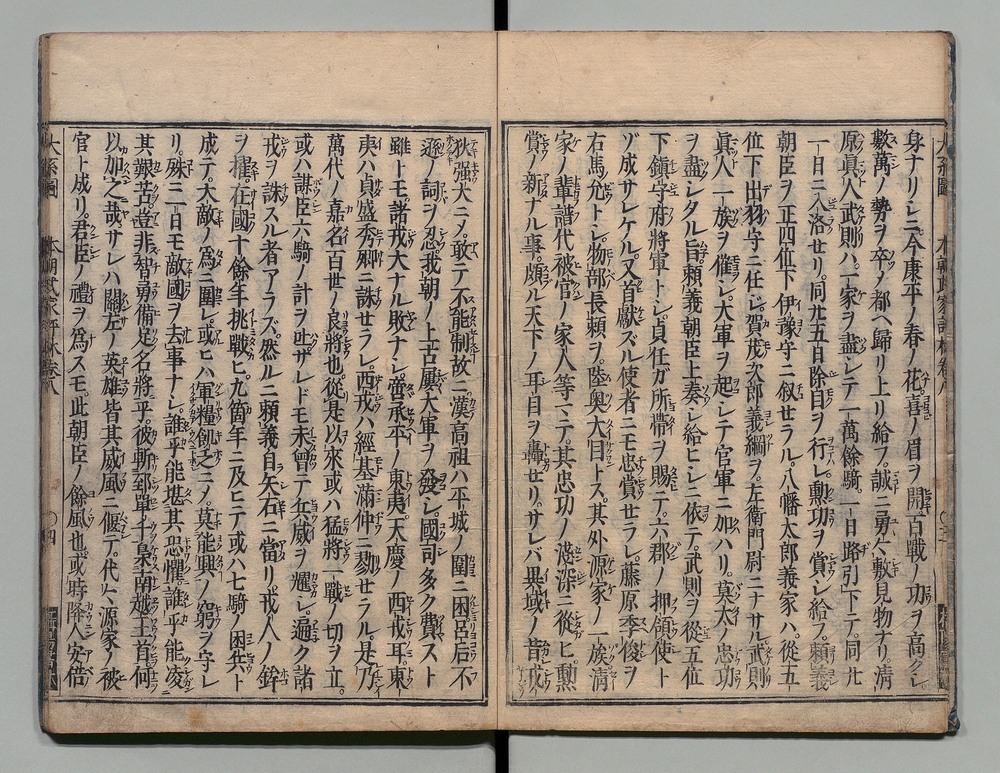 身ナリシニ今康平ノ春ノ花喜ノ眉ヲ開百戰ノ功ヲ高クシ
數萬ノ勢ヲ卒ノ都ヘ歸リ上リ給フ誠ニ勇々敷見物ナリ。清
原眞人武則ハ。一家ヲ盡シテ一萬餘騎。一日路引下テ。同廿
一日ニ入洛セリ。同廿五日除目ヲ行レ。勲功ヲ賞シ給フ。頼義
朝臣ヲ正四位下伊豫守ニ叙セラル。八幡太郎義家ハ。從五
位下出羽守ニ任シ。賀茂次郎義綱ヲ。左衛門尉ニナサル武則
ヲ盡シタル旨。頼義朝臣上奏シ給ヒシニ依テ。武則ヲ從五位
眞人一族ヲ催シ。大軍ヲ起シテ官軍ニ加ハリ。莫太ノ忠功
下鎮守府將軍トシ。貞任ガ所帶ヲ賜テ。六郡ノ押領使ト
ゾ成サレケル。又首獻ズル使者ニモ忠賞セラレ。藤原季俊ヲ
右馬允トシ。物部長頼ヲ。陸奥大目トス。其外源家ノ一族清
家ノ輩譜代被官ノ家人等ニテ。其忠功ノ淺深ニ從ヒ。勲
賞ノ新ナル事。頗ル天下ノ耳目ヲ轟セリ。サレバ異域ノ昔戎
狄强大ニノ。敢テ不能制故ニ漢高祖ハ平城ノ圍ニ困呂后不
遜ノ詞ヲ忍我朝ノ上古屢大軍ヲ發シ。國司多ク費スト
雖トモ。諸戎大ナル敗ナシ。啻承平ノ東夷。天慶ノ西戎耳。東
夷ハ貞盛秀郷ニ誅セラレ。西戎ハ經基滿仲ニ勠セラル。是乃
萬代ノ嘉名百世ノ良將也從是以來或ハ猛將一戰ノ切ヲ立。
或ハ謀臣六騎ノ計ヲ吐ザレドモ未曾テ兵威ヲ颺シ。遍ク諸
戎ヲ誅スル者アラズ。然ルニ頼義自矢石ニ當リ戎人ノ鋒
ヲ摧。在國十餘年挑戰ヒ。九箇年ニ及ヒテ或ハ七騎ノ困兵ト
成テ。大敵ノ爲ニ圍レ或ヒハ軍糧飢乏ニノ。莫能興ノ窮ヲ守レ
リ。殊ニ一日モ敵國ヲ去事ナシ。誰乎能堪其恐懼誰乎能凌
其艱苦。豈非智勇備足名將乎。彼斬郅單于梟南越王首何
以加之哉。サレハ關左ノ英雄皆其威風ニ偃テ。代々源家ノ被
官ト成リ。君臣ノ禮ヲ爲スモ。此朝臣ノ餘風也或時降人安倍